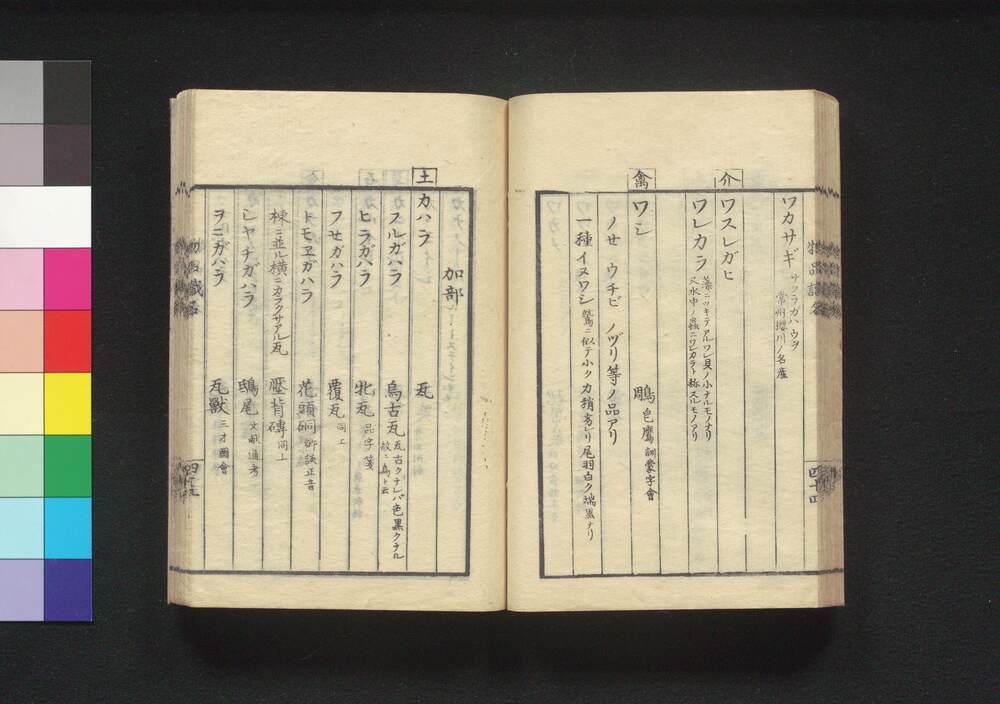 ワカサギ サクラガハウヲ
常州櫻川ノ名産
介
ワスレガヒ
ワレカラ 藻ニツキテアルワレ貝ノ小ナルモノナリ
又水中ノ蟲ニワレカラト称スルモノアリ
禽
ワシ 鵰 皀鷹 訓蒙字會
ノセ ウチビ ノヅリ等ノ品アリ
一種 イヌワシ 鷲ニ似テ小ク力稍劣レリ尾羽白ク端黒ナリ
物品識名
四十四
加部
土
カハラ 瓦
スルガハラ 烏古瓦 瓦古クナレバ色黒クナル
故ニ烏ト云
ヒラガハラ 牝瓦 品字箋
フセガハラ 覆瓦 同上
トモヱガハラ 花頭 郷談正音
棟ニ並ル横ニカラクサアル瓦 壓脊磚 同上
シヤチガハラ 鴟尾 文献通考
ヲニガハラ 瓦獸 三才圖會
物品識名
四十五